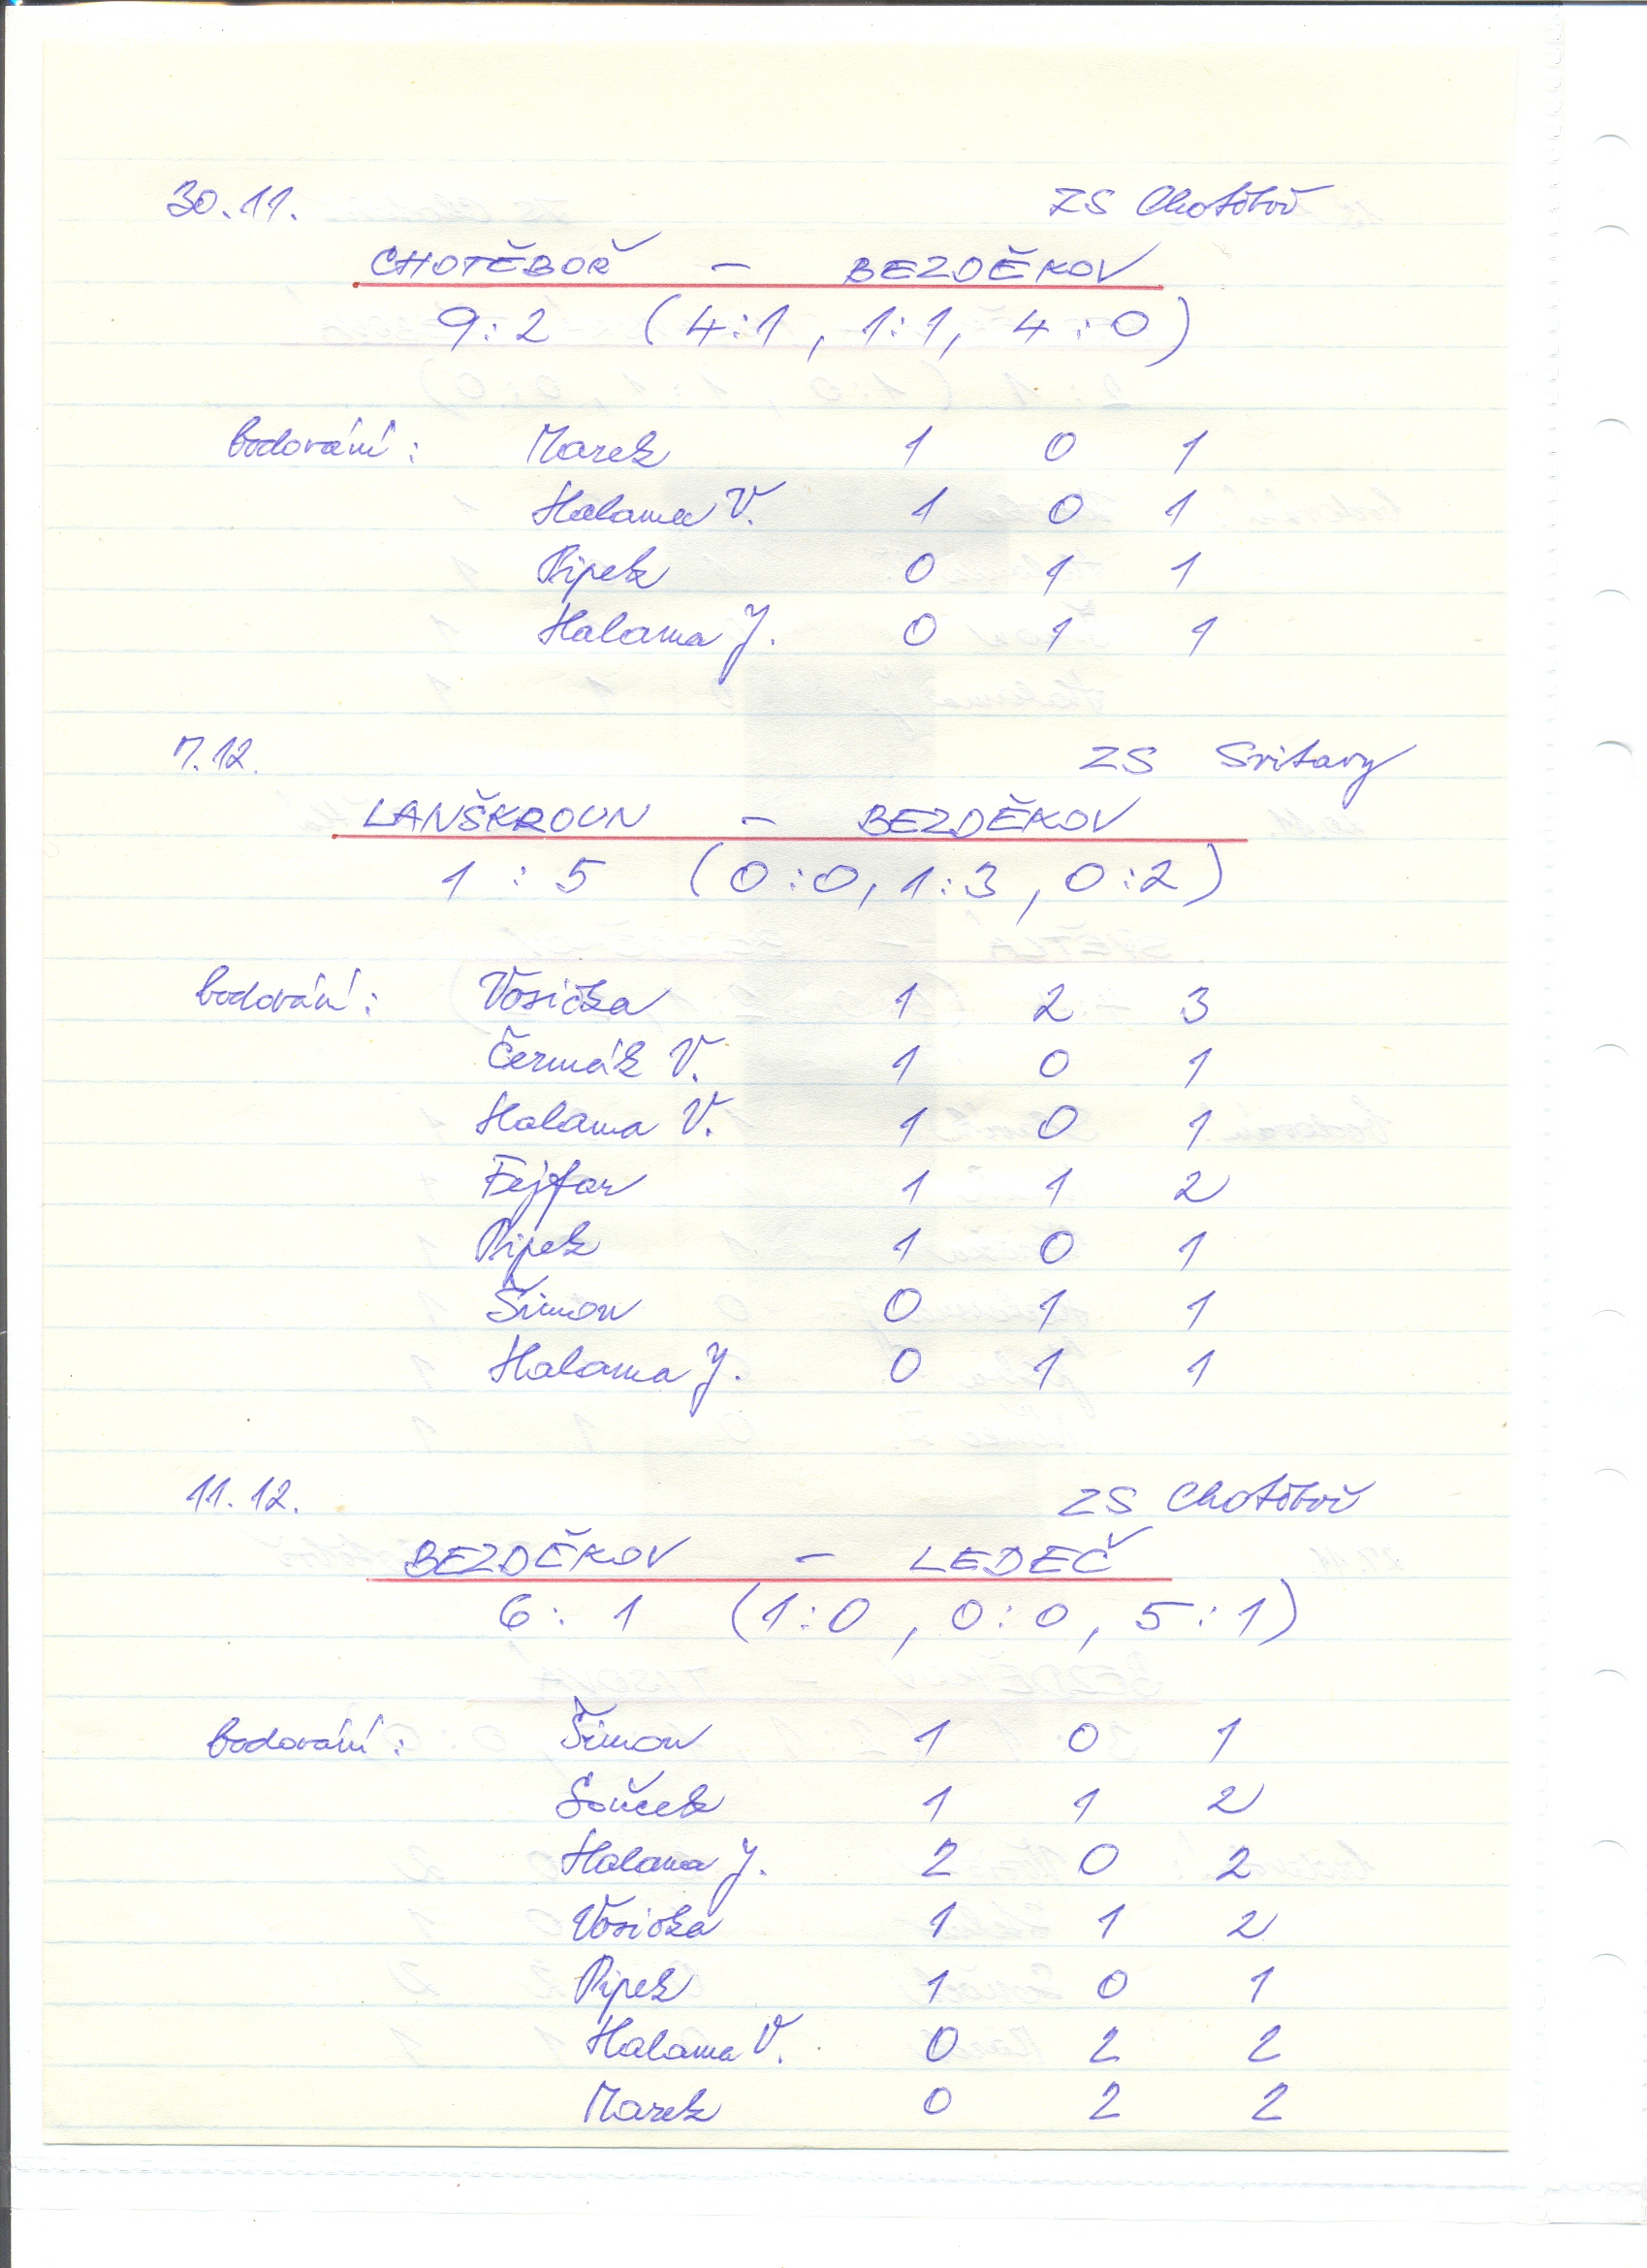 30.11. ZS Chotěboř
CHOTĚBOŘ - BEZDĚKOV
9:2 (4:1, 1:1, 4:0)
bodování: Marek 1 0 1
Halama V. 1 0 1
Pipek 0 1 1
Halama J. 0 1 1
7.12. ZS Svitavy
LANŠKROUN - BEZDĚKOV
1:5 (0:0, 1:3, 0:2)
bodování: Vosička 1 2 3
Čermák V. 1 0 1
Halama V. 1 0 1
Fejfar 1 1 2
Pipek 1 0 1
Šimon 0 1 1
Halama J. 0 1 1
11.12. ZS Chotěboř
BEZDĚKOV - LEDEČ
6:1 (1:0, 0:0, 5:1)
bodování: Šimon 1 0 1
Souček 1 1 2
Halama J. 2 0 2
Vosička 1 1 2
Pipek 1 0 1
Halama V. 0 2 2
Marek 0 2 2